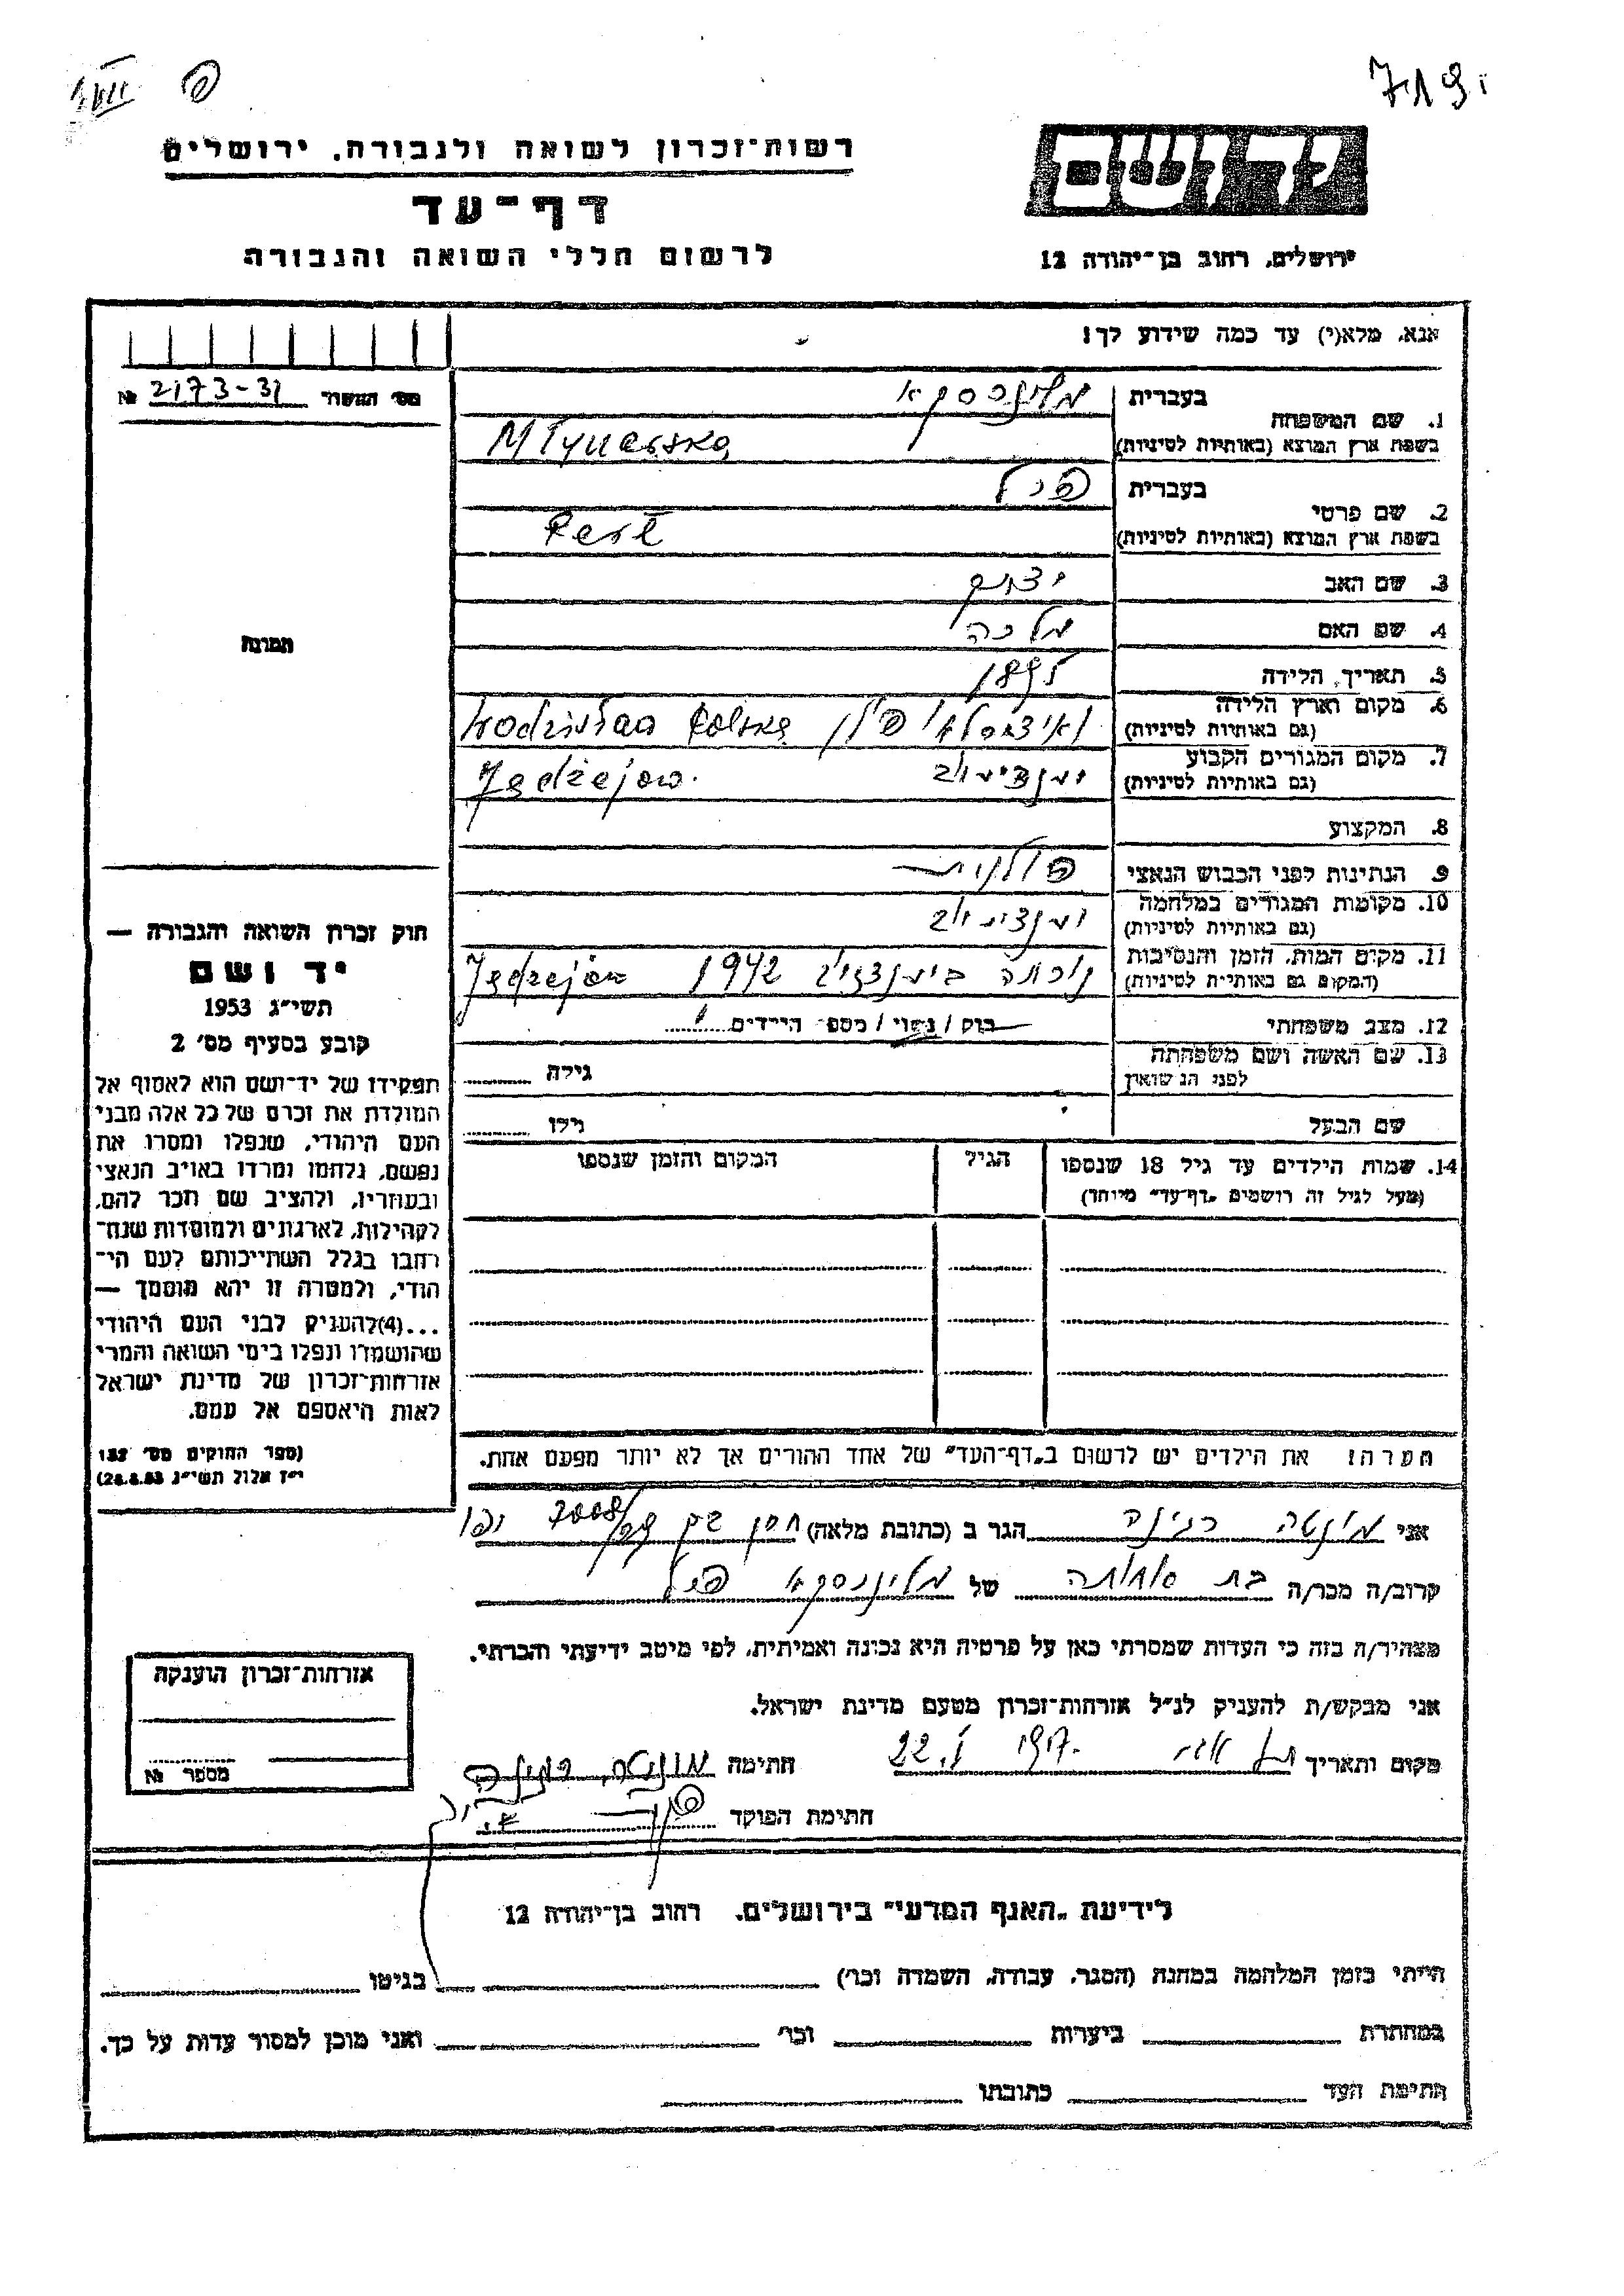 719
רשות-זכרון לשואה ולגבורה, ירושלים
דף-עד
לרשום חללי השואה והגבורה
ידושם
ירושלים, רחוב בן-יהודה 12
אנא, מלא(י) עד כמה שידוע לך!
מס' האשור 2173-31 №
1. שם המשפחה
בעברית מלינרסקא
בשפת ארץ המוצא (באותיות לטיניות) Młynarska
2. שם פרטי
בעברית פרל
בשפת ארץ המוצא (באותיות לטיניות) Perl
3. שם האב יצחק
4. שם האם מלכה
5. תאריך הלידה 1895
6. מקום וארץ הלידה
(גם באותיות לטיניות) Wodzisław Polska
7. מקום המגורים הקבוע
(גם באותיות לטיניות) Jędrzejow
8. המקצוע
9. הנתינות לפני הכבוש הנאצי פולנית
10. מקומות המגורים במלחמה
(גם באותיות לטיניות)
11. מקום המות, הזמן והנסיבות
(המקום גם באותיות לטיניות) 1942 Jedrzejow
12. מצב משפחתי רוק / נשוי / מספר הילדים
13. שם האשה ושם משפחתה
לפני הנשואין גילה
שם הבעל גילו
14. שמות הילדים עד גיל 18 שנספו הגיל המקום והזמן שנספו
(מעל לגיל זה רושמים "דף-עד" מיוחד)
תמונה
חוק זכרון השואה והגבורה —
יד ושם
תשי"ג 1953
קובע בסעיף מס' 2
תפקידו של יד-ושם הוא לאסוף אל
המולדת את זכרם של כל אלה מבני
העם היהודי, שנפלו ומסרו את
נפשם, נלחמו ומרדו באויב הנאצי
ובעוזריו, ולהציב שם וזכר להם,
לקהילות, לארגונים ולמוסדות שנח־
רבו בגלל השתייכותם לעם הי־
הודי, ולמטרה זו יהא מוסמך —
...(4)להעניק לבני העם היהודי
שהושמדו ונפלו בימי השואה והמרי
אזרחות-זכרון של מדינת ישראל
לאות היאספם אל עמם.
(ספר החוקים מס' 132
י"ז אלול תשי"ג 28.8.53)
הערה: את הילדים יש לרשום ב"דף-העד" של אחד ההורים אך לא יותר מפעם אחת.
אני רגינה הגר ב (כתובת מלאה) יפו
קרוב/ה מכר/ה בת אחותה של מלינרסקא פרל
מצהיר/ה בזה כי העדות שמסרתי כאן על פרטיה היא נכונה ואמיתית, לפי מיטב ידיעתי והכרתי.
אני מבקש/ת להעניק לנ"ל אזרחות-זכרון מטעם מדינת ישראל.
מקום ותאריך חתימה
חתימת הפוקד
אזרחות-זכרון הוענקה
מספר №
לידיעת "האגף המדעי" בירושלים, רחוב בן-יהודה 12
הייתי בזמן המלחמה במחנה (הסגר, עבודה, השמדה וכו') בגיטו
במחתרת ביערות וכו' ואני מוכן למסור עדות על כך.
חתימת העד כתובתו